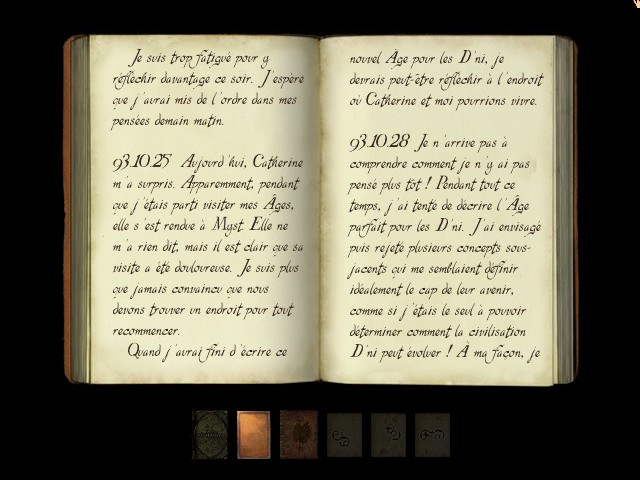 Je suis trop fatigué pour y
réfléchir davantage ce soir. J'espère
que j'aurai mis de l'ordre dans mes
pensées demain matin.
93.10.25 Aujourd'hui, Catherine
m'a surpris. Apparemment, pendant
que j'étais parti visiter mes Âges,
elle s'est rendue à Myst. Elle ne
m'a rien dit, mais il est clair que sa
visite a été douloureuse. Je suis plus
que jamais convaincu que nous
devons trouver un endroit pour tout
recommencer.
Quand j'aurai fini d'écrire ce
nouvel Âge pour les D'ni, je
devrais peut-être réfléchir à l'endroit
où Catherine et moi pourrions vivre.
93.10.28 Je n'arrive pas à
comprendre comment je n'y ai pas
pensé plus tôt ! Pendant tout ce
temps, j'ai tenté de décrire l'Âge
parfait pour les D'ni. J'ai envisagé
puis rejeté plusieurs concepts sous-
jacents qui me semblaient définir
idéalement le cap de leur avenir,
comme si j'étais le seul à pouvoir
déterminer comment la civilisation
D'ni peut évoluer ! À ma façon, je